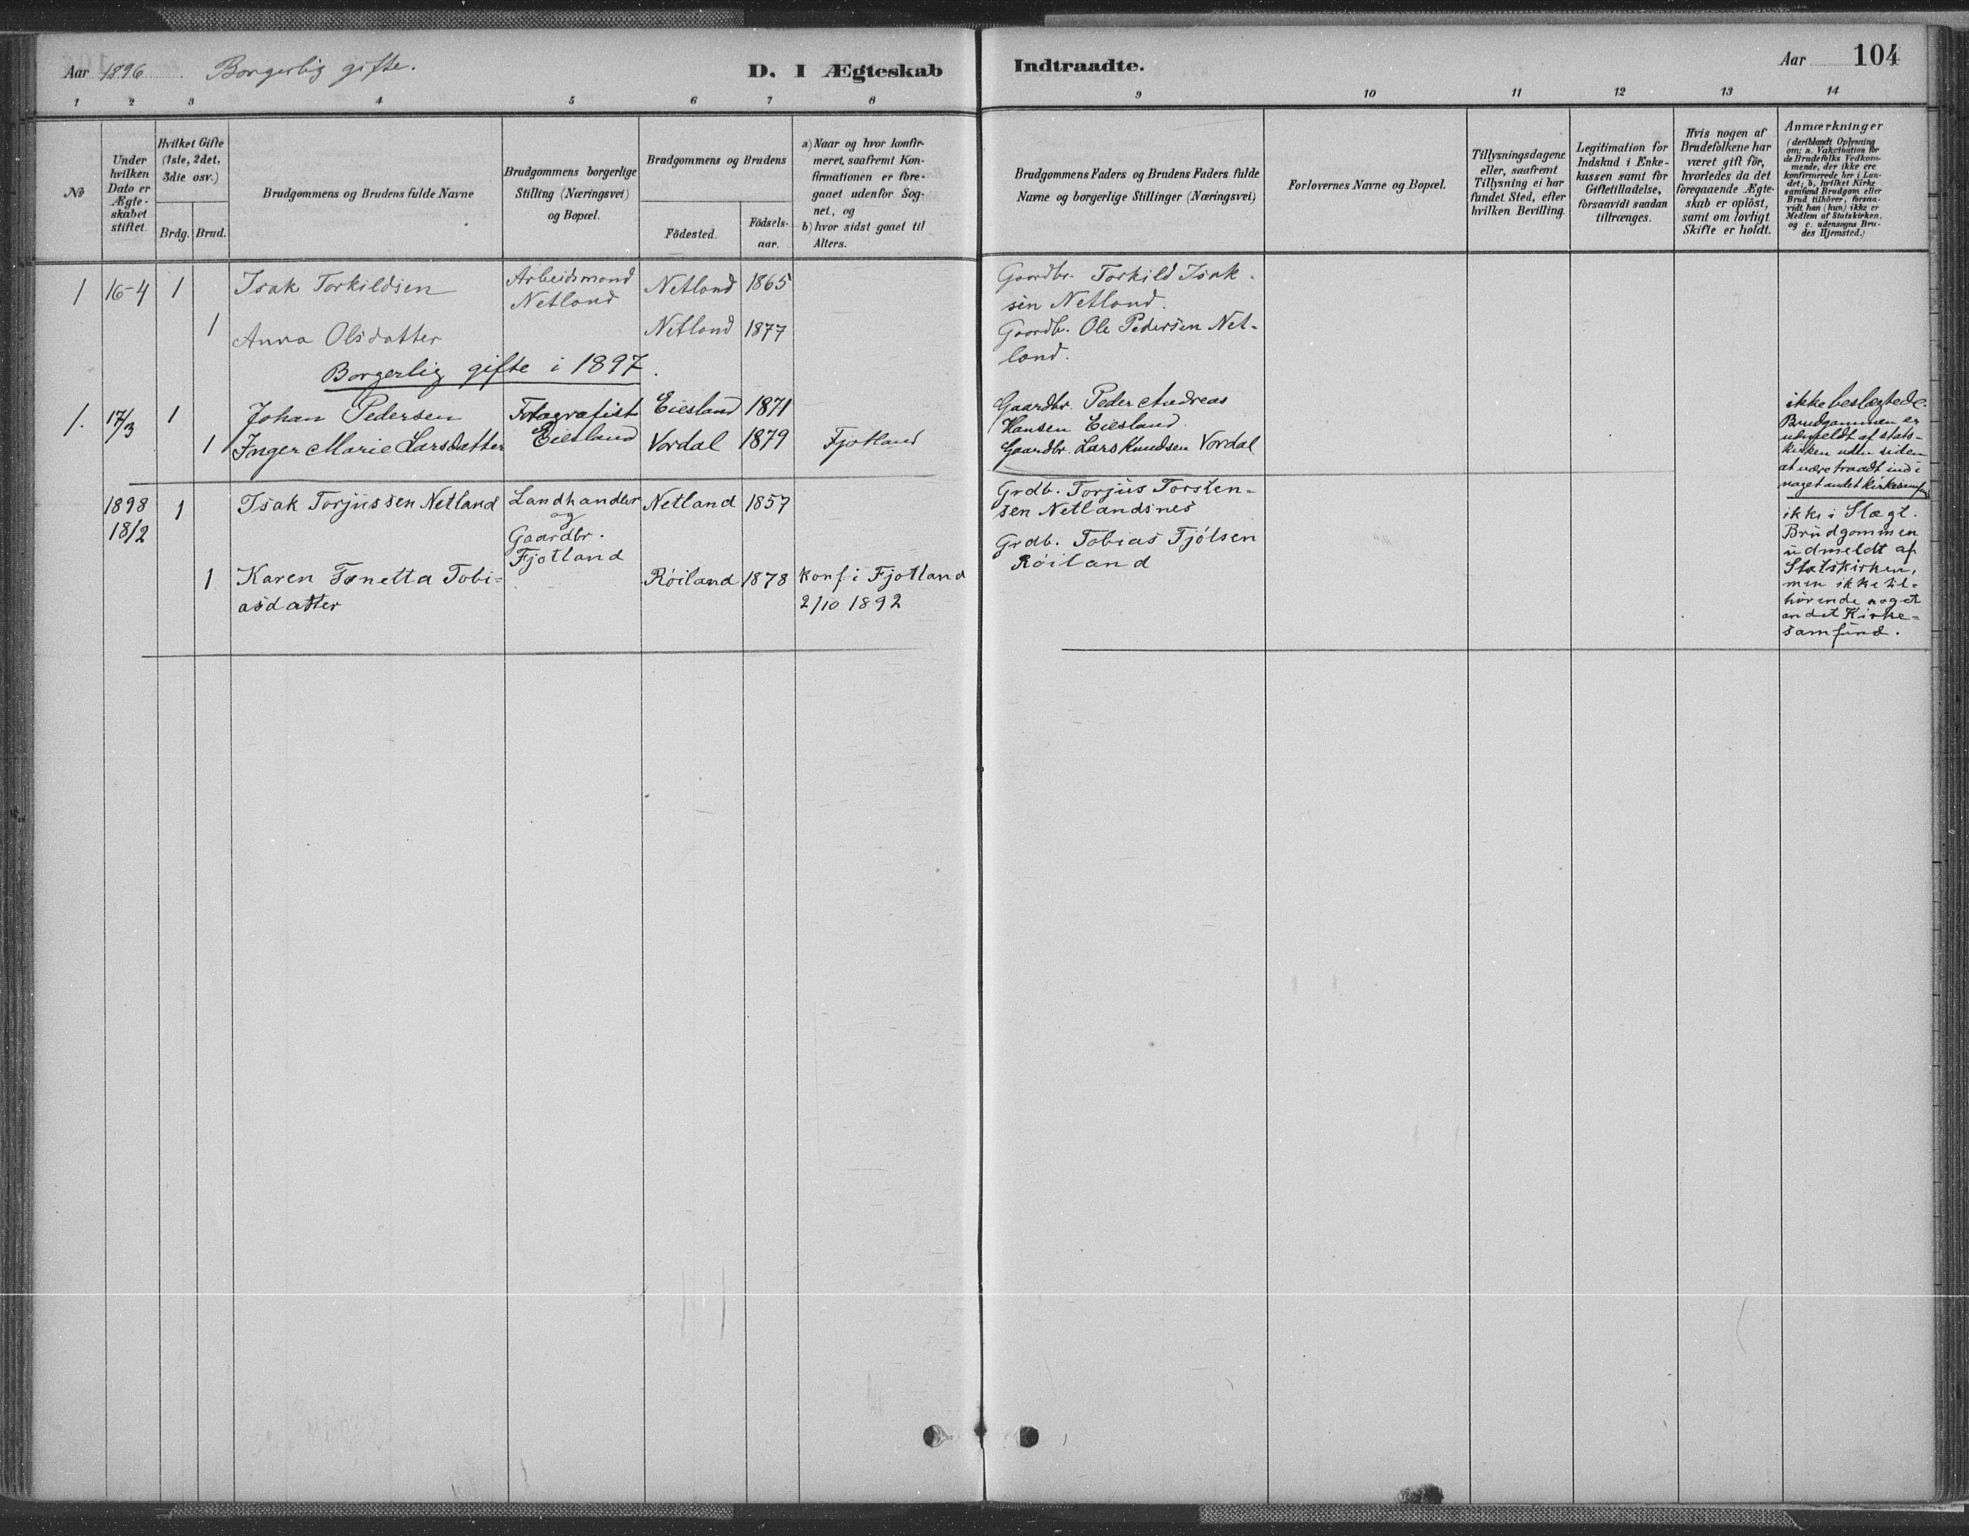 Aar 1896. Borgerlig gifte. D. I Ægteskab Indtraadte. Aar 104
1 2 3 4 5 6 7 8 9 10 11 12 13 14
No
Under
hvilken
Dato er
Ægte-
skabet
stiftet.
Hvilket Gifte
(1ste, 2det,
3die osv.)
Brdg. Brud.
Brudgommens og Brudens fulde Navne
Brudgommens borgerlige
Stilling (Næringsvei)
og Bopæl.
Brudgommens og Brudens
Födested.
Födsels-
aar.
a) Naar og hvor konfir-
meret, saafremt Kon-
firmationen er fore-
gaaet udenfor Sog-
net, og
b) hvor sidst gaaet til
Alters.
Brudgommens Faders og Brudens Faders fulde
Navne og borgerlige Stillinger (Næringsvei)
Forlovernes Navne og Bopæl.
Tillysningsdagene
eller, saafremt
Tillysning ei har
fundet Sted, efter
hvilken Bevilling.
Legitimation for
Indskud i Enke-
kassen samt for
Giftetilladelse,
forsaavidt saadan
tiltrænges.
Hvis nogen af
Brudefolkene har
været gift för,
hvorledes da det
foregaaende Ægte-
skab er oplöst,
samt om lovligt
Skifte er holdt.
Anmærkninger
(deriblandt Oplysning
om: a. Vakcination for
de Brudefolks Vedkom-
mende, der ikke ere
konfirmerede her i Lan-
det; b, hvilket Kirke
samfund Brudgom eller
Brud tilhører, forsaa-
vidt han (hun) ikke er
Medlem af Statskirken,
og c. udensogns Bru-
des Hjemsted.)
1 16-4 1 Isak Torkildsen Arbeidsmand Netland 1865 Gaardbr. Torkild Isak-
Netland sen Netland.
1 Anna Olsdatter Netland 1877 Gaardb. Ole Pedersen Net-
land.
Borgerlig gifte i 1897.
1. 17/3 1 Johan Pedersen Fotografist Eiesland 1871 Gaardbr. Peder Andreas
Eiesland Hansen Eiesland.
1 Inger Marie Larsdatter Vordal 1879 Fjotland Gaardbr. Lars Knudsen Vordal
ikke beslægtede.
Brudgommen er
udmeldt af stats-
kirken uden siden
at være traadt ind i
noget andet kirkesamfund
1898
18/2 1 Isak Torjussen Netland Landhandler Netland 1857 Grdb. Torjus Torsten-
og sen Netlandsnes
Gaardbr.
Fjotland
1 Karen Tonetta Tobi- Røiland 1878 konf. i Fjotland Grdb. Tobias Tjølsen
asdatter 2/10 1892 Røiland
ikke i Slægt.
Brudgommen
udmeldt af
Statskirken,
men ikke til-
hørende noget
andet Kirke-
samfund.